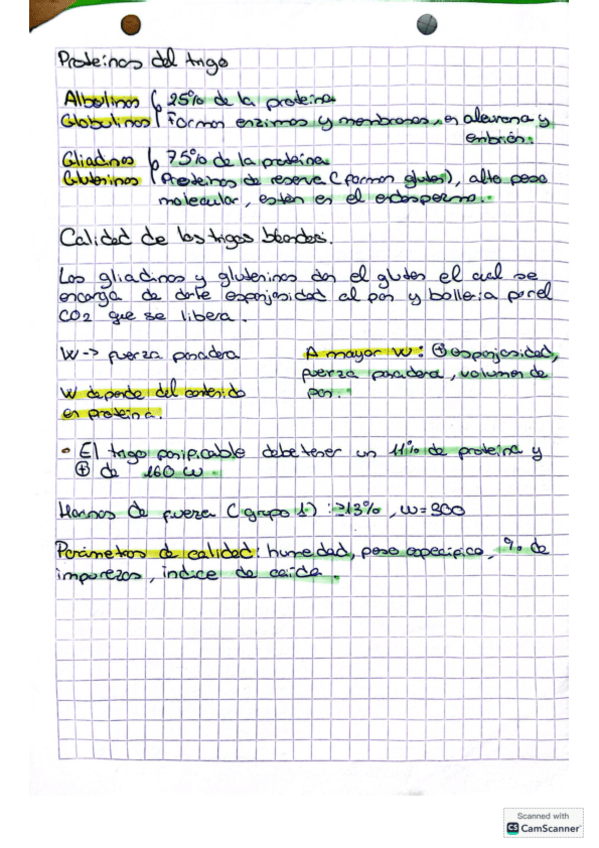 Proteínas del trigo
Albúlinas { 25% de la proteína
Globulinas Forman enzimas y membranas, en aleurona y
embrión.
Gliadinas { 75% de la proteína
Gluteninas Proteínas de reserva (forman gluten), alto peso
molecular, están en el endospermo.
Calidad de los trigos blandos.
Las gliadinas y gluteninas dan el gluten el cual se
encarga de darle esponjosidad al pan y bollería por el
CO2 que se libera.
W -> fuerza panadera
W depende del contenido
en proteína.
A mayor W: ⊕ esponjosidad,
fuerza panadera, volumen de
pan.
• El trigo panificable debe tener un 11% de proteína y
⊕ de 160 W.
Harinas de fuerza (grupo 1): ≥13%, W=300
Parámetros de calidad: humedad, peso específico, % de
impurezas, índice de caída.
Scanned with
CS CamScanner